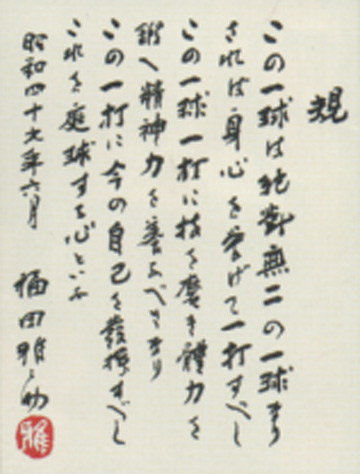 規
この一球は絶對無二の一球なり
されば身心を挙げて一打すべし
この一球一打に技を磨き體力を
鍛へ精神力を養ふべきなり
この一打に今の自己を發揮すべし
これを庭球する心といふ
昭和四十九年六月
福田雅之助
雅